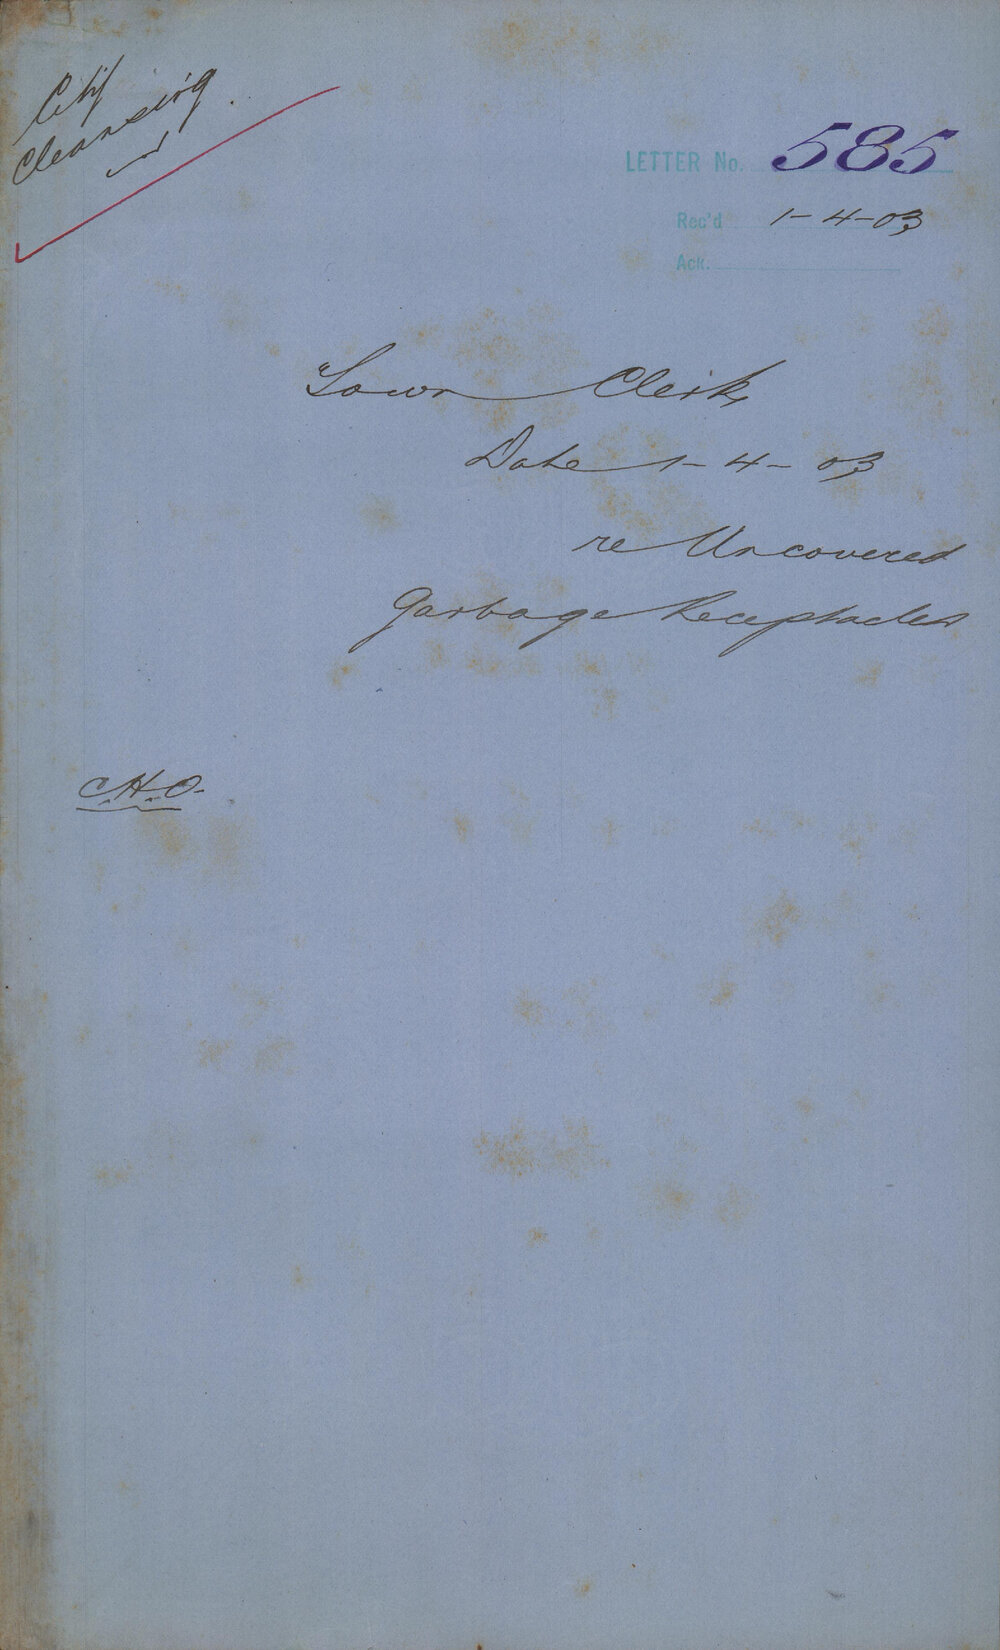 City
Cleansing.
LETTER No. 585
Rec'd 1-4-03
Ack.
Town Clerk,
Date 1-4-03
re Uncovered
Garbage Receptacles
C.H.O.